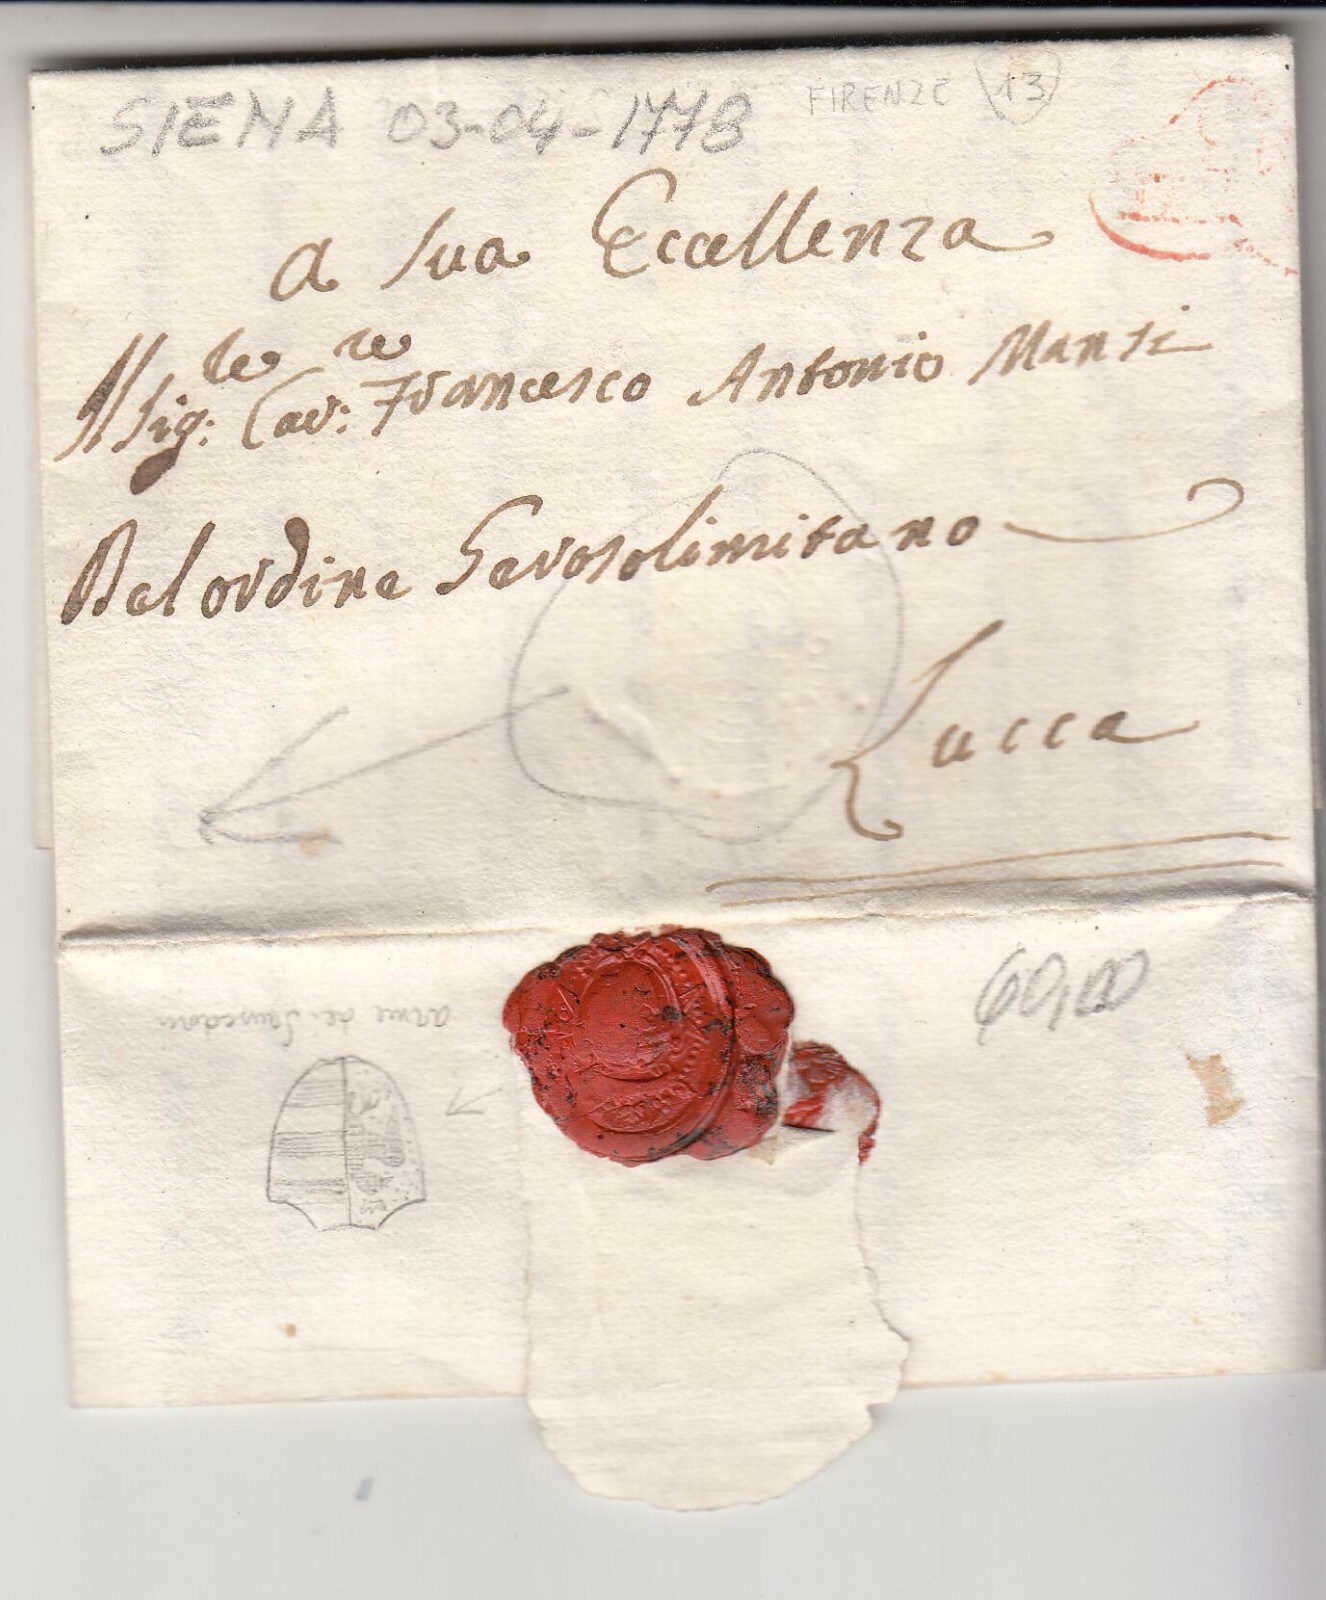 SIENA 03-04-1778
FIRENZE 13
a sua Eccellenza
Il Sig:le Cav:re Francesco Antonio Mansi
Del ordine Gerosolimitano
Lucca
60,00
arme dei Sansedoni